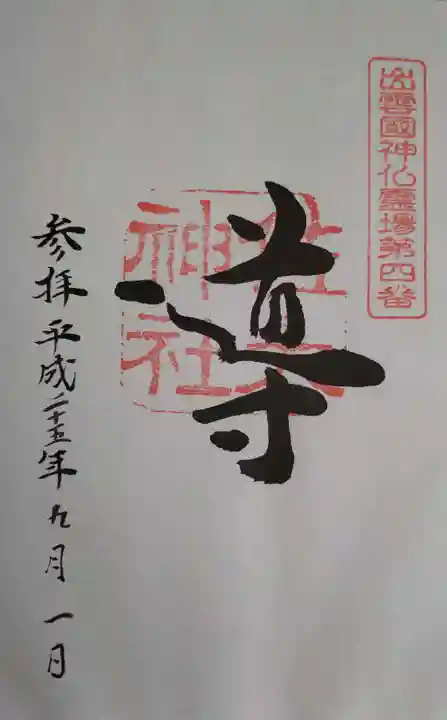 出雲國神仏霊場第四番
導
佐太
神社
参拝平成二十五年九月一日